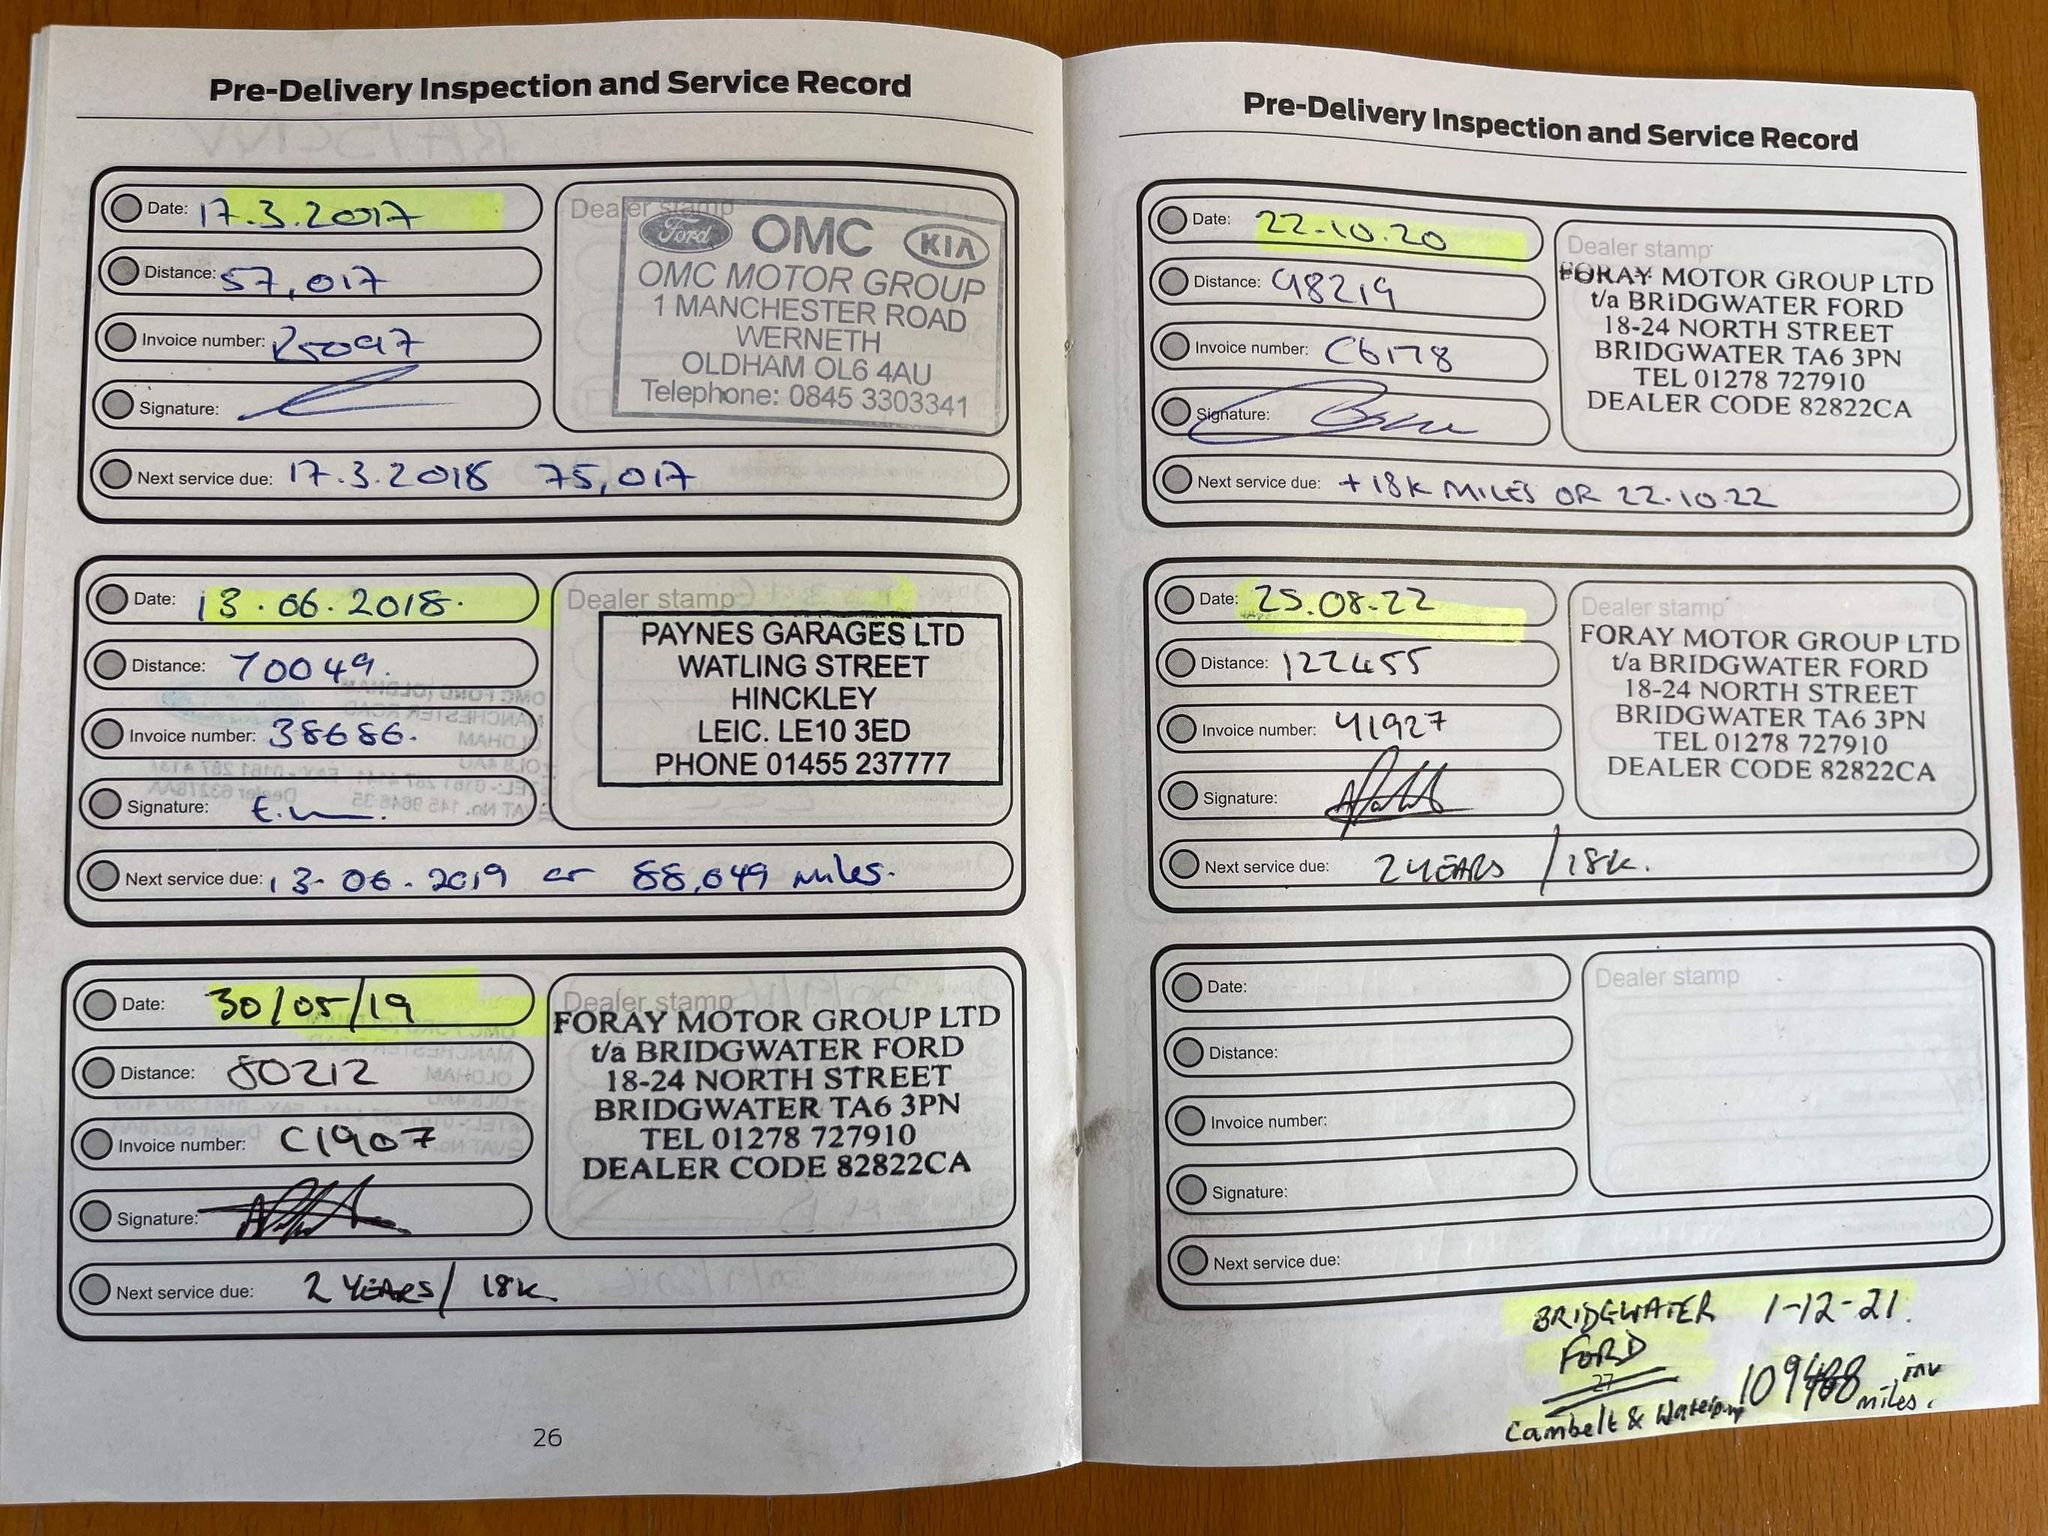 Pre-Delivery Inspection and Service Record
Date: 17.3.2017
Distance: 57,017
Invoice number: 25097
Signature:
Next service due: 17.3.2018 75,017
Dealer stamp
Ford OMC KIA
OMC MOTOR GROUP
1 MANCHESTER ROAD
WERNETH
OLDHAM OL6 4AU
Telephone: 0845 3303341
Date: 13.06.2018.
Distance: 70049.
Invoice number: 38686.
Signature:
Next service due: 13-06.2019 or 88,049 miles.
Dealer stamp
PAYNES GARAGES LTD
WATLING STREET
HINCKLEY
LEIC. LE10 3ED
PHONE 01455 237777
Date: 30/05/19
Distance: 80212
Invoice number: C1907
Signature:
Next service due: 2 YEARS/ 18K
Dealer stamp
FORAY MOTOR GROUP LTD
t/a BRIDGWATER FORD
18-24 NORTH STREET
BRIDGWATER TA6 3PN
TEL 01278 727910
DEALER CODE 82822CA
26
Pre-Delivery Inspection and Service Record
Date: 22.10.20
Distance: 98219
Invoice number: C6178
Signature:
Next service due: +18K MILES OR 22.10.22
Dealer stamp
FORAY MOTOR GROUP LTD
t/a BRIDGWATER FORD
18-24 NORTH STREET
BRIDGWATER TA6 3PN
TEL 01278 727910
DEALER CODE 82822CA
Date: 25.08.22
Distance: 122455
Invoice number: 41927
Signature:
Next service due: 2 YEARS / 18K.
Dealer stamp
FORAY MOTOR GROUP LTD
t/a BRIDGWATER FORD
18-24 NORTH STREET
BRIDGWATER TA6 3PN
TEL 01278 727910
DEALER CODE 82822CA
Date:
Distance:
Invoice number:
Signature:
Next service due:
Dealer stamp
BRIDGWATER 1-12-21.
FORD
27
Cambelt & Waterpump miles.